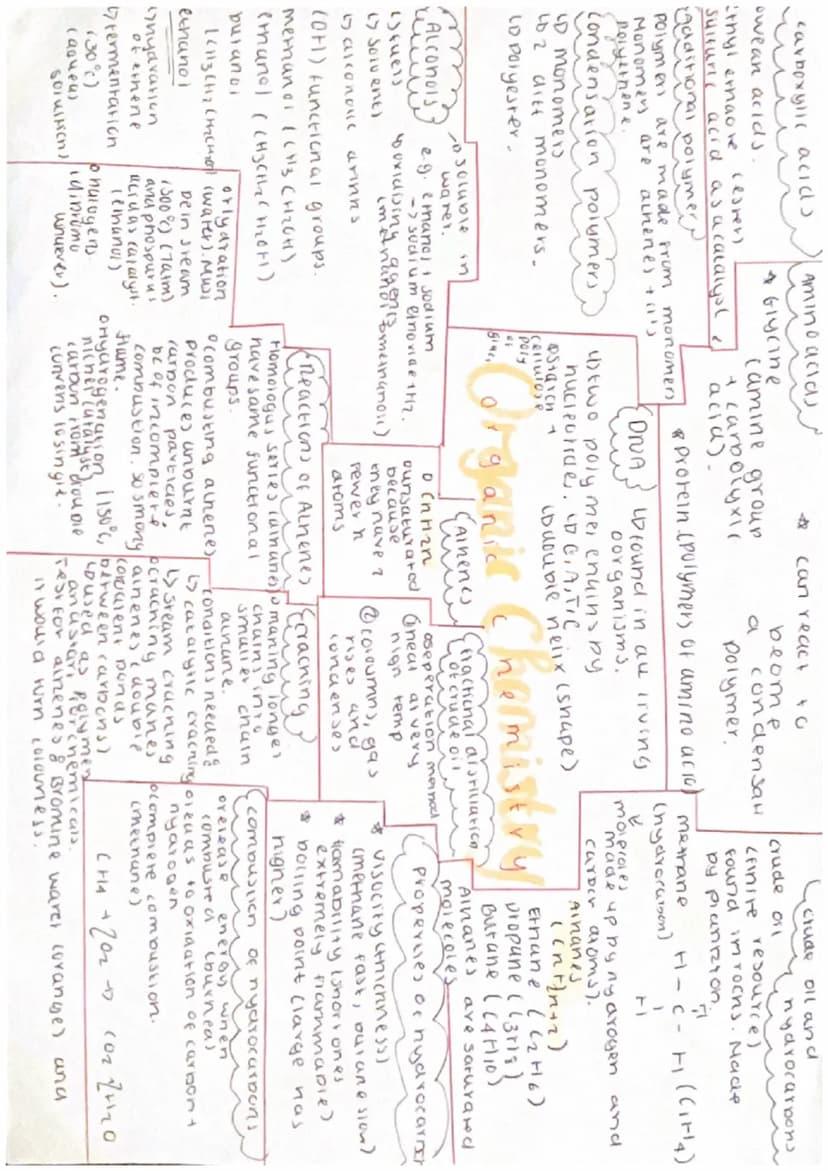 Organic Chemistry
crude oil and
hydrocarbons
crude oil
(finite resource)
found in rocks. Made
by plankton.
methane H - C - H (CH4)
H
H
(hydrocarbon)
molecules
made up by hydrogen and
carbon atoms).
Alkanes
(CnH2n+2)
Ethane (C2H6)
propane (C3H8)
Butane (C4H10)
Alkanes are saturated
molecules
Properties of hydrocarbon
* viscosity (thickness)
(methane fast, butane slow)
* flamability (short ones
extremely flammable)
* boiling point (large has
higher)
Combustion of hydrocarbons
release energy when
combusted (burned)
leads to oxidation of carbon +
hydrogen
complete combustion.
(methane)
CH4 + 2O2 → CO2 + 2H2O
Fractional distillation
of crude oil
seperation method
① heat at very
high temp
② coloumns, gas
rises and
condenses
Cracking
making longer
chains into
smaller chain
alkane.
conditions needed
↳ catalytic cracking
↳ steam cracking
cracking makes
alkenes (double
covalent bonds
between carbons)
↳ used as polymer
and start for chemicals.
Test for alkenes: Bromine water (orange) and
it would turn colourless.
Alkenes
CnH2n
unsaturated
because
they have 2
fewer H
atoms
Reactions of Alkenes
Homologus series (alkenes)
have same functional
groups.
combusting alkenes
produces unburnt
carbon particles,
bc of incomplete
combustion. So smoky
flame.
hydrogenation (150°C,
nickel catalyst)
carbon from double
converts to single.
orlyaration
(water). Must
be in steam
(300°C) (70atm)
and phosphoric
acid as catalyst.
(ethanol)
halogens
Alcohols
↳ fuels
↳ solvents
↳ alcoholic drinks
(OH) functional groups.
methanol (CH3CH2OH)
ethanol (CH3CH2CH2OH)
butanol
(CH3CH2CH2CH2OH)
ethanol
↳ hydration
of ethene
↳ fermentation
(30°C)
(aqueous
solution)
soluble in
water.
e.g. ethanol + sodium
→ sodium ethoxide + H2.
↳ oxidising agents
DNA
↳ found in all living
organisms.
↳ two polymer chains by
nucleotide. ↳ G, A, T, C
↳ double helix (shape)
starch +
cellulose
poly
Amino acids
* Glycine
(amine group
+ carbolyxic
acid).
* can react to
beome
a condensat
polymer.
* Protein (polymers of amino acid)
carboxylic acids
weak acids.
ethyl ethanoate (ester)
sulfuric acid as a catalyst
Additional polymers
polymers are made from monomers
Monomers are alkenes
polythene.
Condensation polymers
↳ monomers
↳ 2 diff monomers.
↳ polyester.